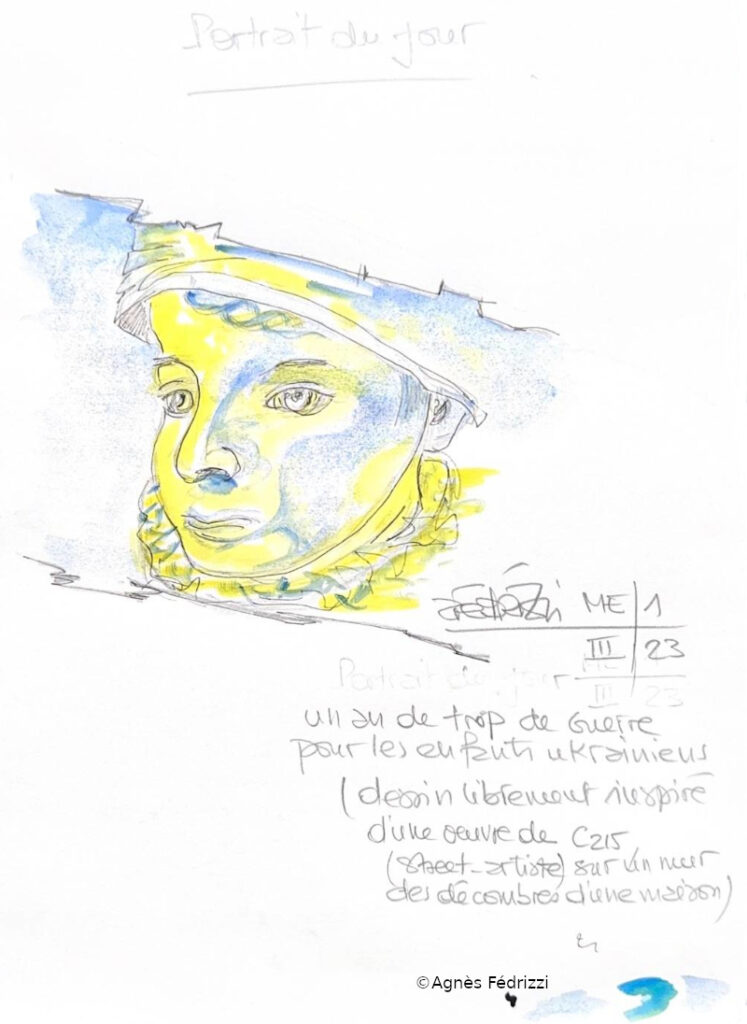 Portrait du jour
Fédrizzi ME 1
III 23
Portrait du jour
III 23
un an de trop de guerre
pour les enfants ukrainiens
(dessin librement inspiré
d'une oeuvre de C215
(street-artiste) sur un mur
des décombres d'une maison)
©Agnès Fédrizzi